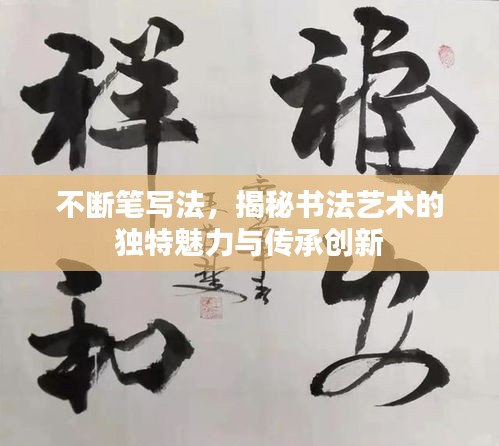 福安
祥和
不断笔写法，揭秘书法艺术的
独特魅力与传承创新